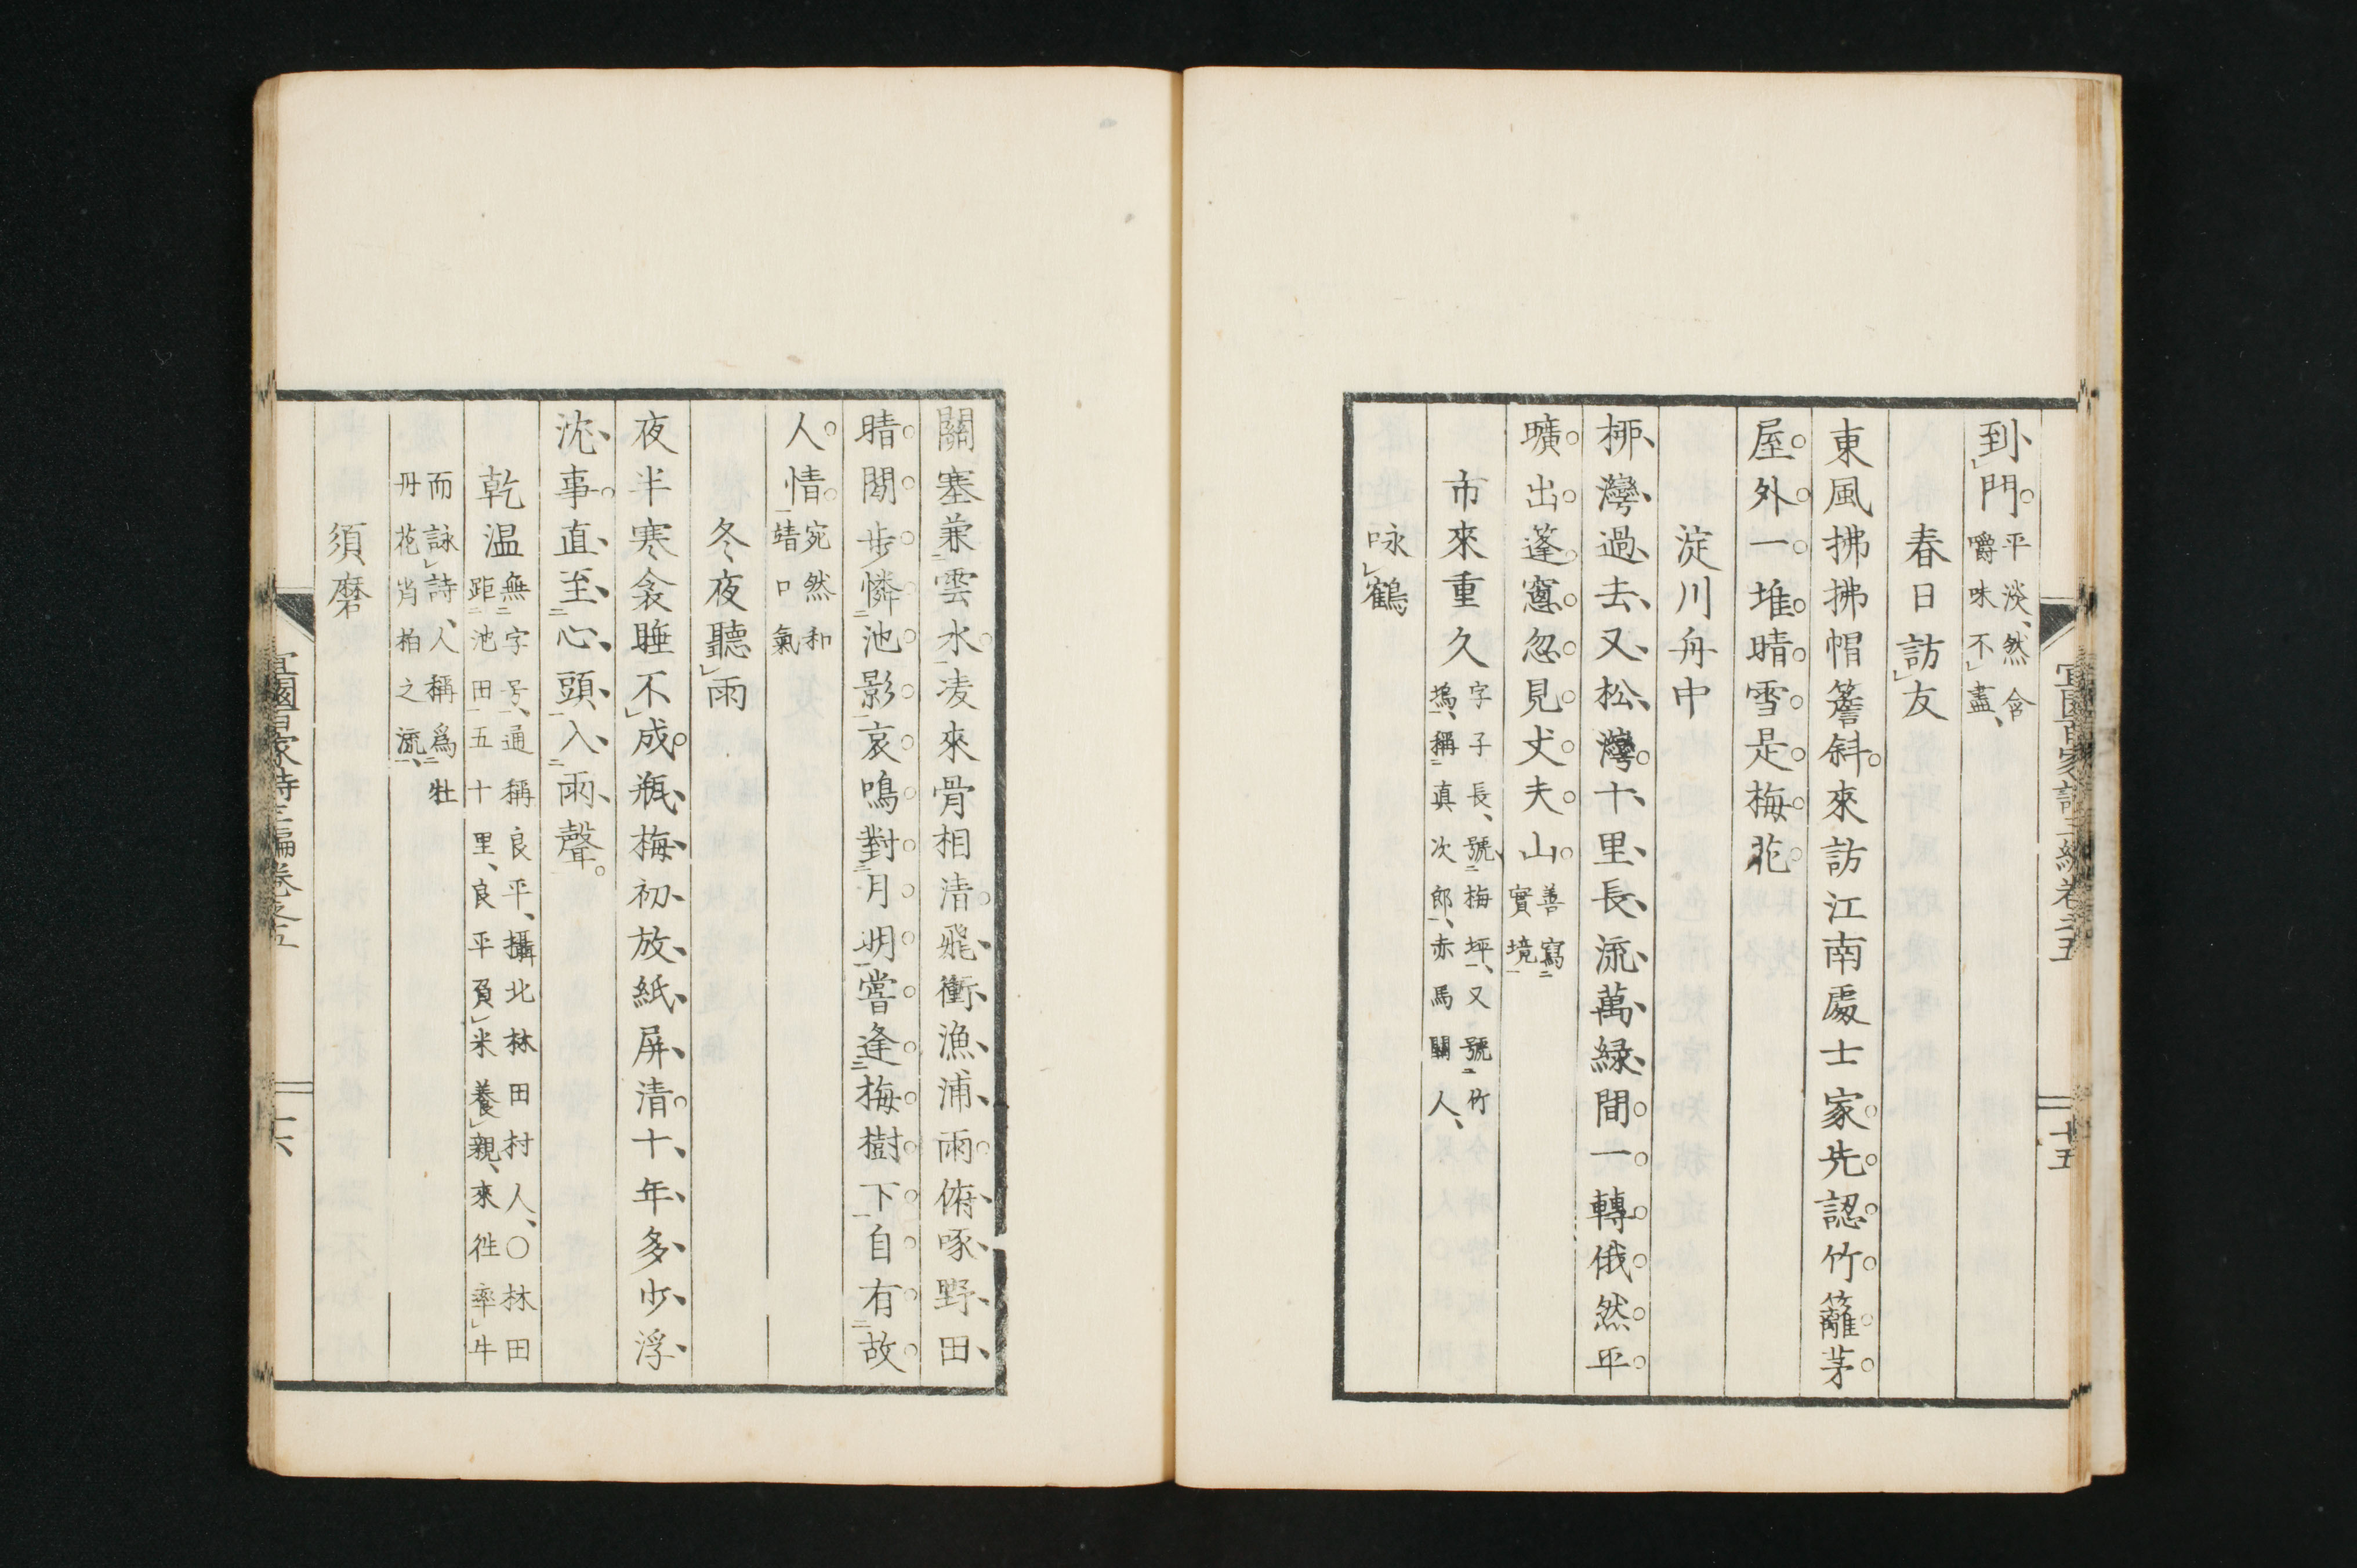 到門平淡然含
嚼味不盡
春日訪友
東風拂拂帽簷斜來訪江南處士家先認竹籬茅
屋外一堆晴雪是梅花
淀川舟中
栁灣過去又松灣十里長流萬緑間一轉俄然平
曠出篷窻忽見丈夫山善寫
實境
市來重久字子長號梅坪又號竹
塢稱真次郎赤馬關人
咏鶴
宜園百家詩三編卷之五
十五
關塞兼雲水凌來骨相清飛衝漁浦雨俯啄野田
晴閒步憐池影哀鳴對月明嘗逢梅樹下自有故
人情宛然和
靖口氣
冬夜聽雨
夜半寒衾睡不成瓶梅初放紙屏清十年多少浮
沈事直至心頭入雨聲
乾温無字号通稱良平攝北林田村人〇林田
距池田五十里良平負米養親來徃率牛
而詠詩人稱爲牡
丹花肖柏之流
須磨
宜園百家詩三編卷之五
十六